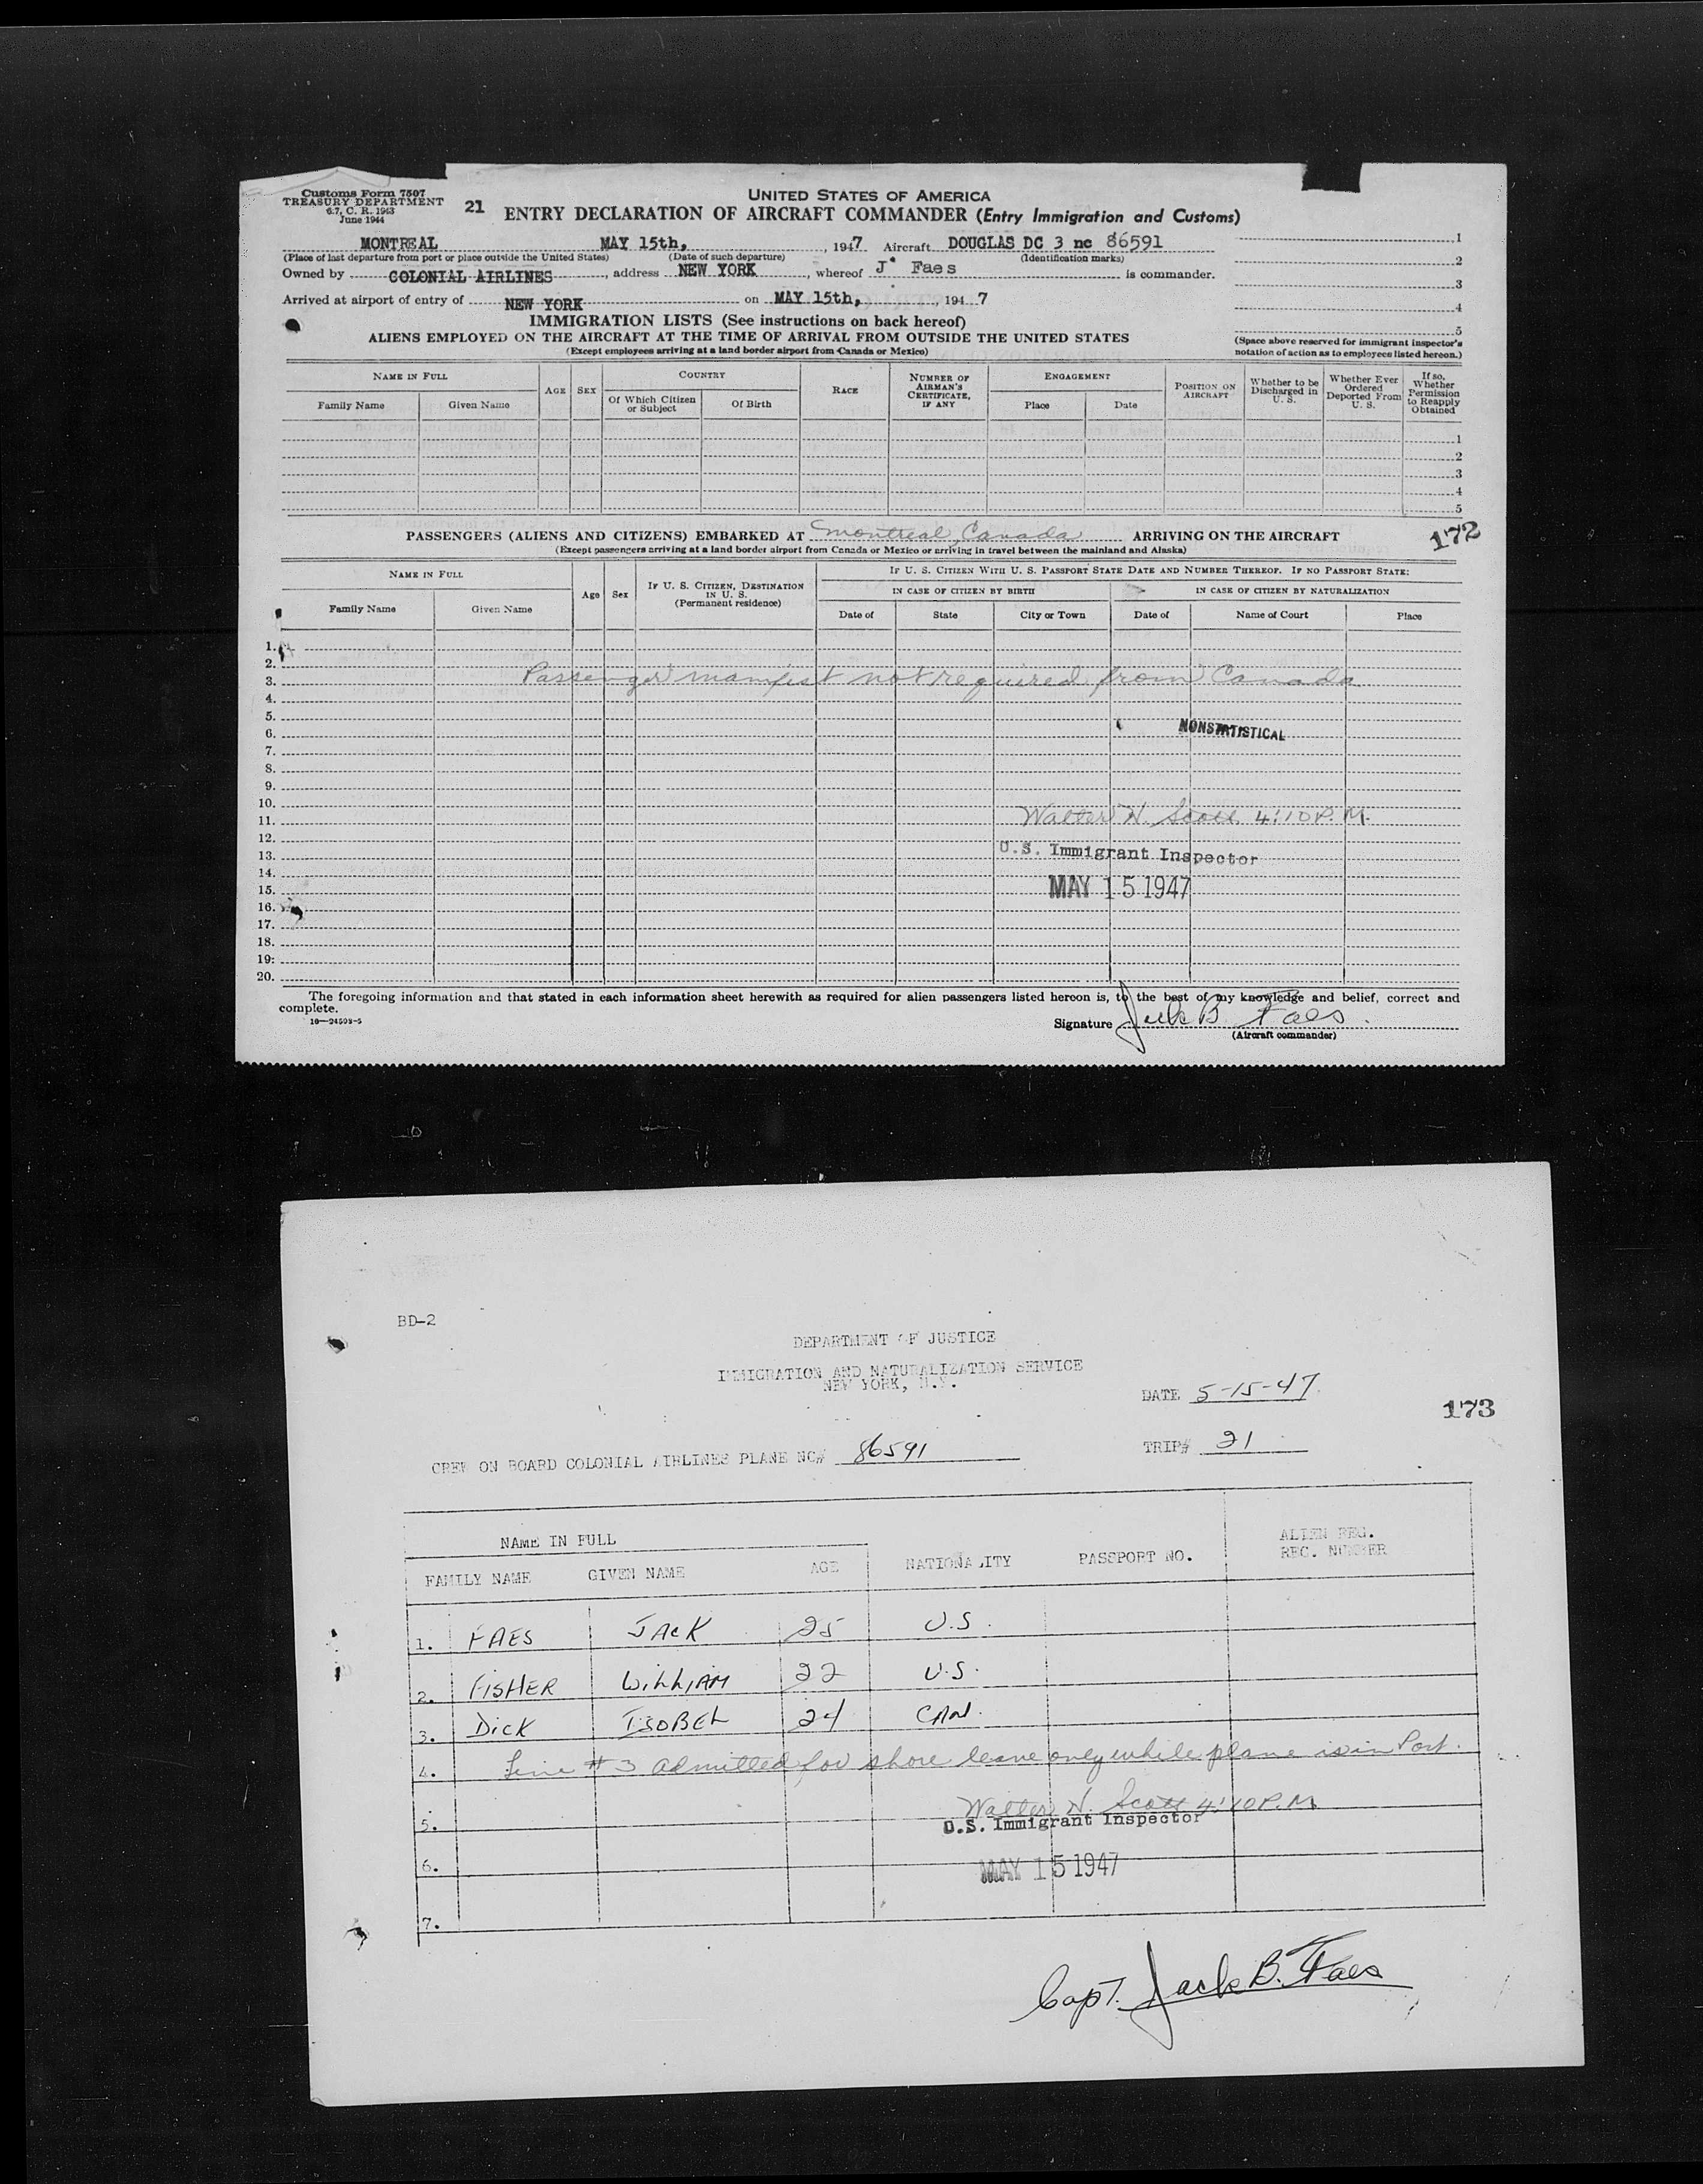 Customs Form 7507
TREASURY DEPARTMENT
6.7, C. R. 1943
June 1944
21
UNITED STATES OF AMERICA
ENTRY DECLARATION OF AIRCRAFT COMMANDER (Entry Immigration and Customs)
MONTREAL MAY 15th, , 1947 Aircraft DOUGLAS DC 3 nc 86591
(Place of last departure from port or place outside the United States) (Date of such departure) (Identification marks)
Owned by COLONIAL AIRLINES , address NEW YORK , whereof J. Faes is commander.
Arrived at airport of entry of NEW YORK on MAY 15th, , 1947
1
2
3
4
5
(Space above reserved for immigrant inspector's
notation of action as to employees listed hereon.)
IMMIGRATION LISTS (See instructions on back hereof)
ALIENS EMPLOYED ON THE AIRCRAFT AT THE TIME OF ARRIVAL FROM OUTSIDE THE UNITED STATES
(Except employees arriving at a land border airport from Canada or Mexico)
NAME IN FULL
Family Name Given Name
AGE SEX
COUNTRY
Of Which Citizen or Subject Of Birth
RACE
NUMBER OF AIRMAN'S CERTIFICATE, IF ANY
ENGAGEMENT
Place Date
POSITION ON AIRCRAFT
Whether to be Discharged in U. S.
Whether Ever Ordered Deported From U. S.
If so, Whether Permission to Reapply Obtained
1
2
3
4
5
172
PASSENGERS (ALIENS AND CITIZENS) EMBARKED AT Montreal, Canada ARRIVING ON THE AIRCRAFT
(Except passengers arriving at a land border airport from Canada or Mexico or arriving in travel between the mainland and Alaska)
NAME IN FULL
Family Name Given Name
Age Sex
IF U. S. CITIZEN, DESTINATION IN U. S. (Permanent residence)
IF U. S. CITIZEN WITH U. S. PASSPORT STATE DATE AND NUMBER THEREOF. IF NO PASSPORT STATE:
IN CASE OF CITIZEN BY BIRTH IN CASE OF CITIZEN BY NATURALIZATION
Date of State City or Town Date of Name of Court Place
1.
2.
3. Passenger manifest not required from Canada
4.
5.
6. NONSTATISTICAL
7.
8.
9.
10.
11. Walter H. Scott 4:10 P.M.
12.
13. U.S. Immigrant Inspector
14.
15. MAY 15 1947
16.
17.
18.
19.
20.
The foregoing information and that stated in each information sheet herewith as required for alien passengers listed hereon is, to the best of my knowledge and belief, correct and
complete.
16—24593-5
Signature Jack B. Faes
(Aircraft commander)
BD-2
DEPARTMENT OF JUSTICE
IMMIGRATION AND NATURALIZATION SERVICE
NEW YORK, N.Y.
DATE 5-15-47
173
CREW ON BOARD COLONIAL AIRLINES PLANE NC# 86591 TRIP# 21
NAME IN FULL
FAMILY NAME GIVEN NAME AGE NATIONALITY PASSPORT NO. ALIEN REG. REC. NUMBER
1. FAES JACK 25 U.S.
2. FISHER WILLIAM 22 U.S.
3. DICK ISOBEL 24 CAN.
4. Line #3 admitted for shore leave only while plane is in Port.
5. Walter H. Scott 4:10 P.M.
U.S. Immigrant Inspector
6. MAY 15 1947
7.
Capt. Jack B. Faes